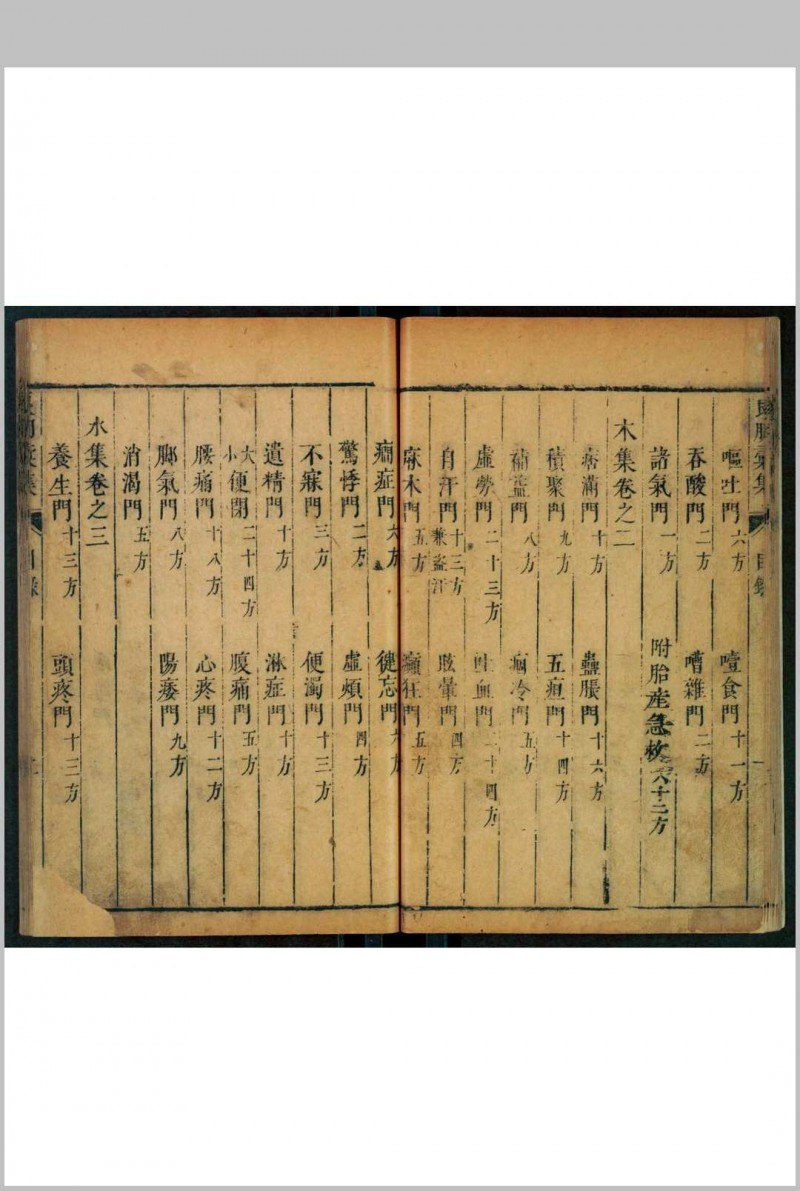 嘔吐門六方 噎食門十一方
吞酸門二方 嘈雜門二方
諸氣門一方 附胎產急救六十二方
木集卷之二
痞滿門十方 蠱脹門十六方
積聚門九方 五疸門十四方
補益門八方 痼冷門五方
虛勞門二十三方 吐血門二十四方
自汗門十三方兼盜汗 眩暈門四方
麻木門五方 癲狂門五方
癇症門六方 健忘門六方
驚悸門二方 虛煩門四方
不寐門三方 便濁門十三方
遺精門十方 淋症門十方
大小便閉二十四方 腹痛門五方
腰痛門十八方 心疼門十二方
腳氣門八方 陽痿門九方
消渴門五方
水集卷之三
養生門十三方 頭疼門十三方
目錄